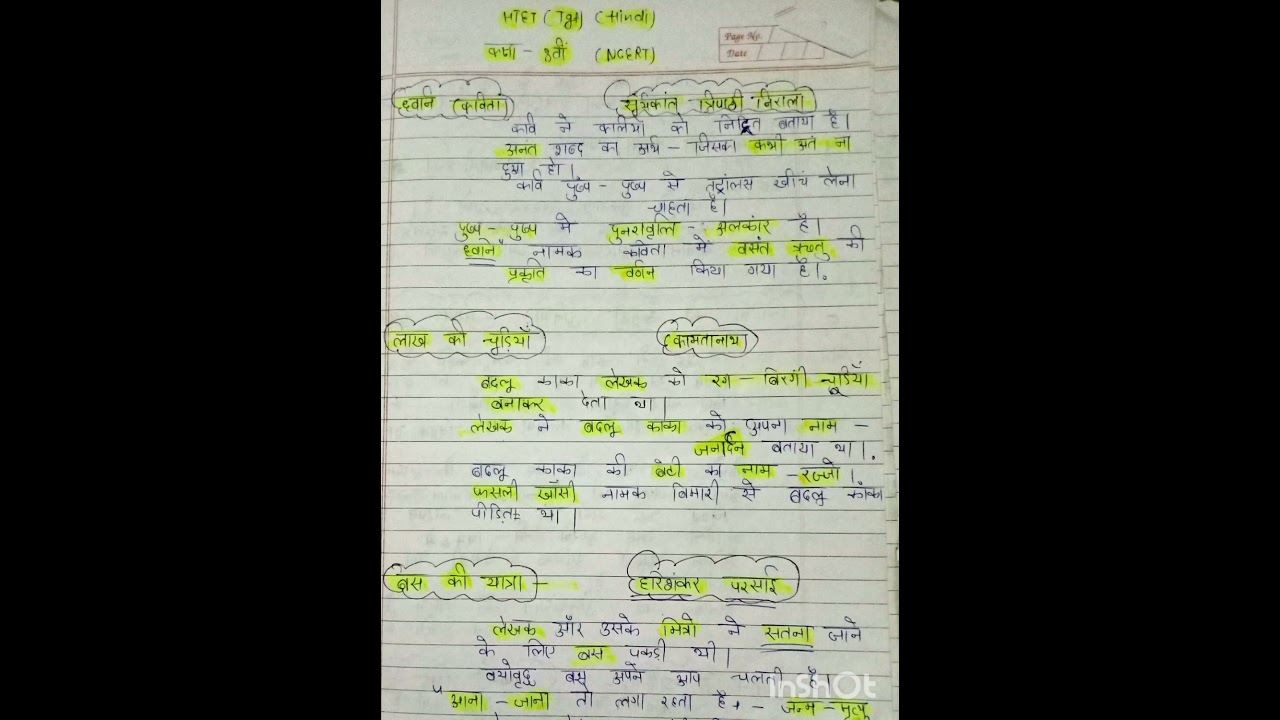 HTET (Tgt) (Hindi)
कक्षा - 8वीं (NCERT)
Page No.
Date
ध्वनि (कविता) सूर्यकांत त्रिपाठी निराला
कवि ने कलियों को निद्रित बताया है।
अनंत शब्द का अर्थ - जिसका कभी अतं ना
हुआ हो।
कवि पुष्प - पुष्प से तद्रांलस खीचं लेना
चाहता है।
पुष्प - पुष्प मे पुनरावृति - अलकांर है।
ध्वनि" नामक कविता में वसंत ऋतु की
प्रकृति का वर्णन किया गया है।
लाख की चूड़ियाँ कामतानाथ
बदलू काका लेखक को रग - बिरगी चूडियाँ
बनाकर देता था।
लेखक ने बदलू काका को अपना नाम -
जनार्दन बताया था।
बदलू काका की बेटी का नाम - रज्जो।
फसली खाँसी नामक बिमारी से बदलू काका
पीड़ित था।
बस की यात्रा - हरिशंकर परसाई
लेखक और उसके मित्रो ने सतना जाने
के लिए बस पकडी थी।
वयोवृद्ध बस अपने आप चलती है।
"आना - जाना तो लगा रहता है - जन्म - मृत्यु
InShOt